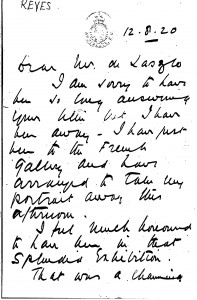 REYES
12.8.20
Dear Mr. de Laszlo
I am sorry to have
been so long answering
your letter but I have
been away - I have just
been to the French
Gallery and have
arranged to take my
portrait away this
afternoon.
I feel much honoured
to have been in that
Splendid Exhibition.
That was a charming